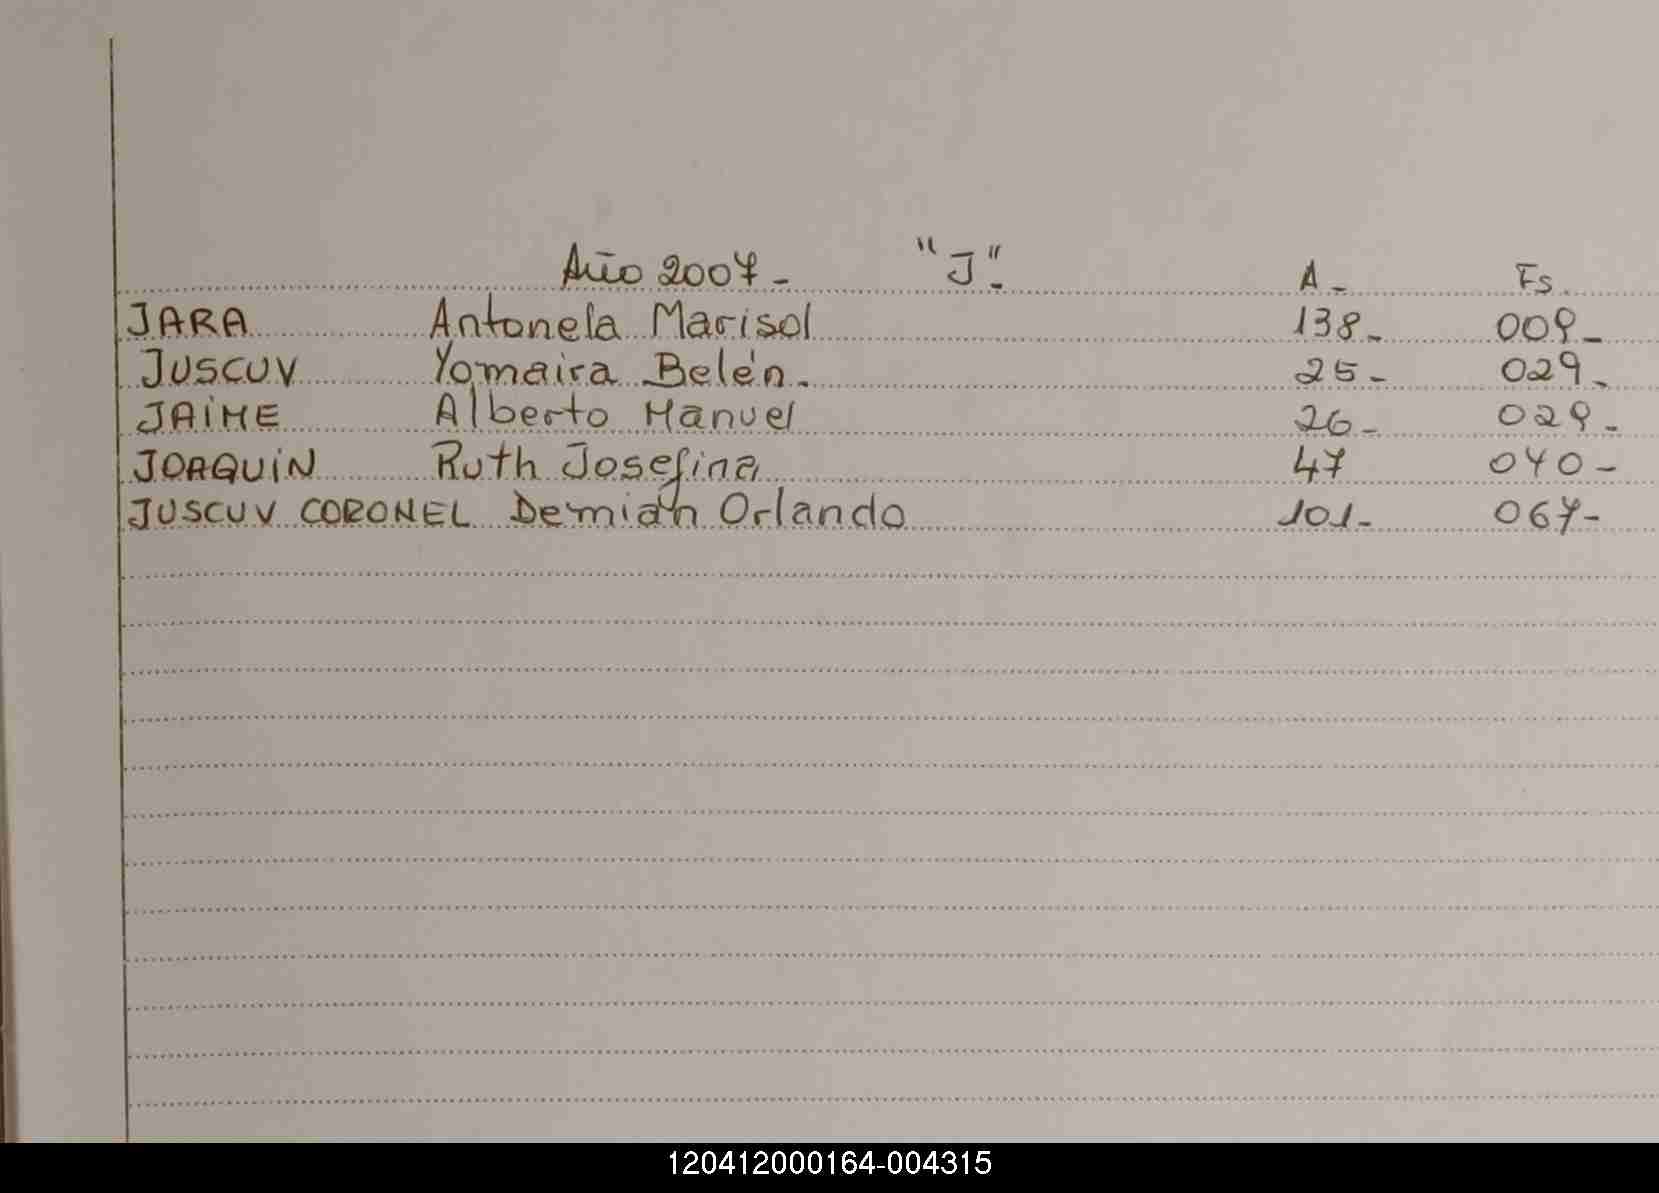 Año 2007- "J"- A- Fs.
JARA Antonela Marisol 138- 009-
JUSCUV Yomaira Belén. 25- 029-
JAIME Alberto Manuel 26- 029-
JOAQUÍN Ruth Josefina 47 040-
JUSCUV CORONEL Demián Orlando 101- 067-
120412000164-004315